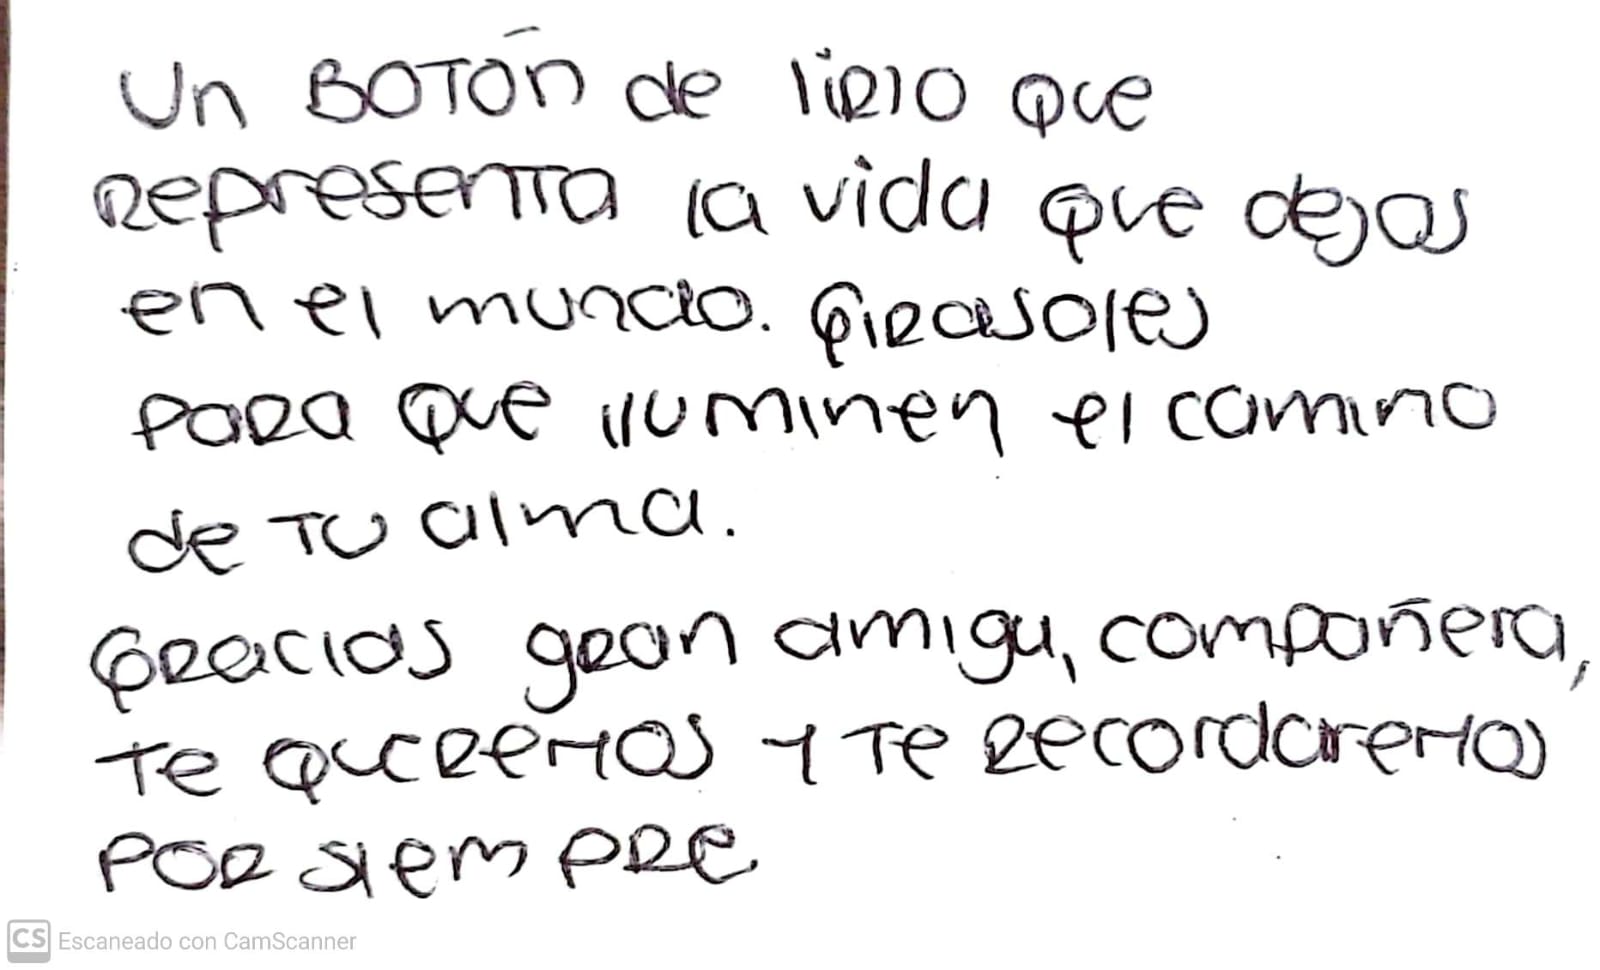 Un BOTÓn de lirio que
Representa la vida que dejas
en el mundo. Girasoles
para que iluminen el camino
de tu alma.
Gracias gran amiga, compañera,
te queremos y te recordaremos
por siempre
CS Escaneado con CamScanner